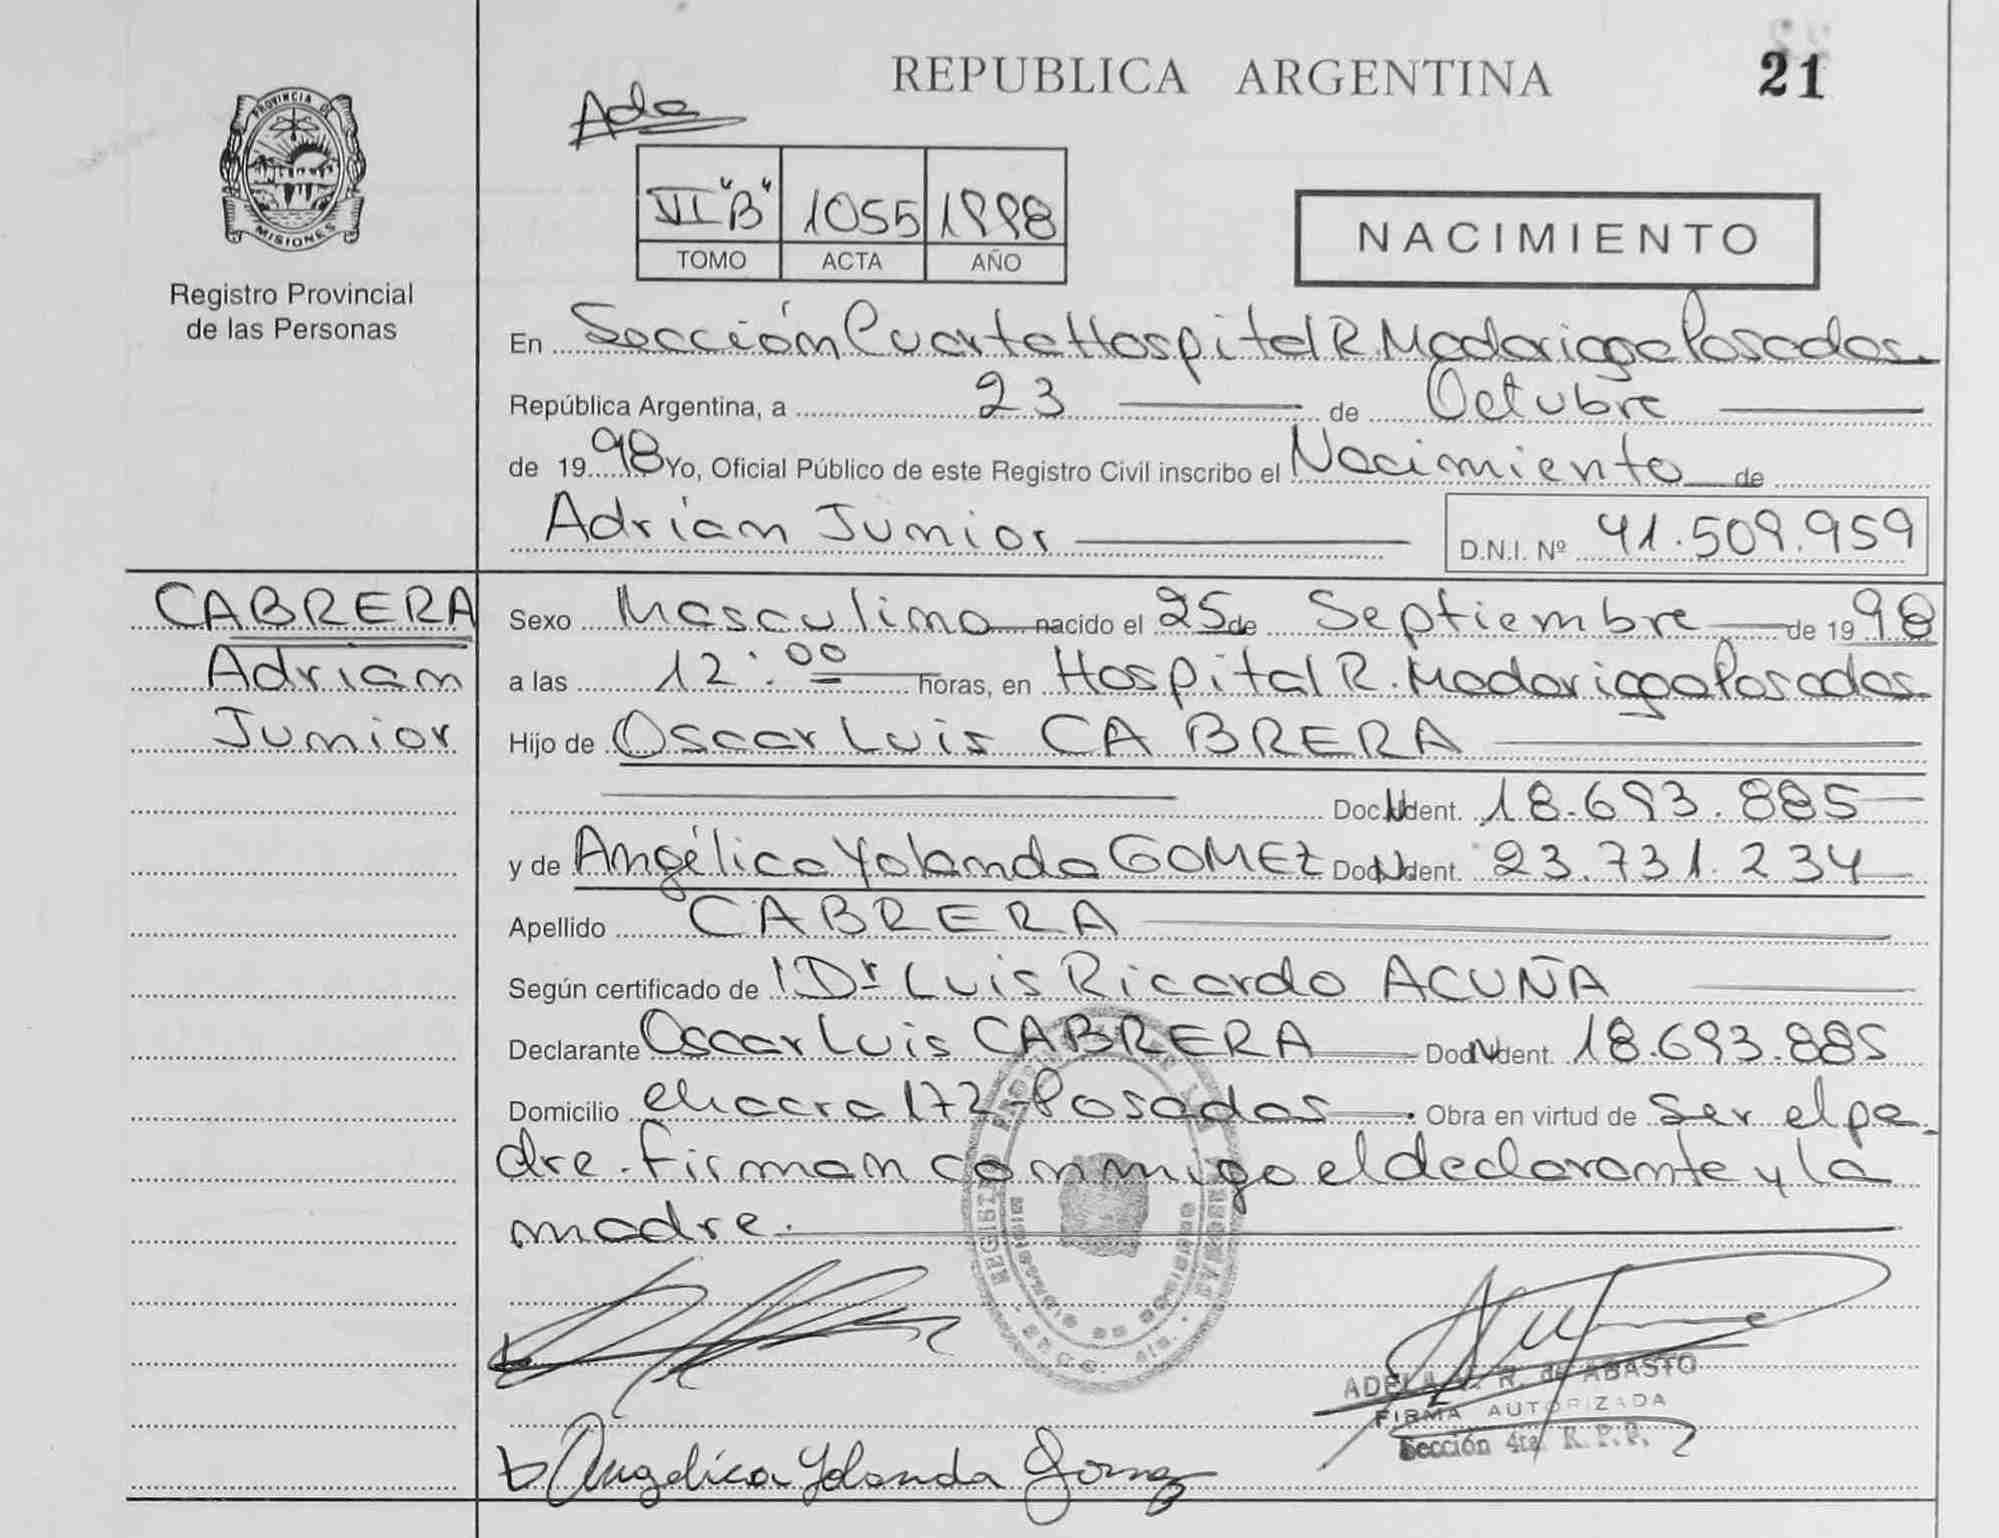 REPUBLICA ARGENTINA
21
Ada
PROVINCIA DE
MISIONES
Registro Provincial
de las Personas
VI "B" 1055 1998
TOMO ACTA AÑO
NACIMIENTO
En Sección Cuarta Hospital R. Madariaga Posadas.
República Argentina, a 23 de Octubre
de 1998 Yo, Oficial Público de este Registro Civil inscribo el Nacimiento de
Adrian Junior D.N.I. Nº 41.509.959
CABRERA
Adrian
Junior
Sexo Masculino nacido el 25 de Septiembre de 1998
a las 12:00 horas, en Hospital R. Madariaga Posadas
Hijo de Oscar Luis CABRERA
Doc. Ident. 18.693.885
y de Angélica Yolanda GOMEZ Doc. Ident. 23.731.234
Apellido CABRERA
Según certificado de Dr Luis Ricardo ACUÑA
Declarante Oscar Luis CABRERA Doc. Ident. 18.693.885
Domicilio chacra 172 - Posadas Obra en virtud de ser el pa-
dre. Firman conmigo el declarante y la
madre.
ADELA R. de ABASTO
FIRMA AUTORIZADA
Sección 4ta R.P.P.
Angelica Yolanda Gomez